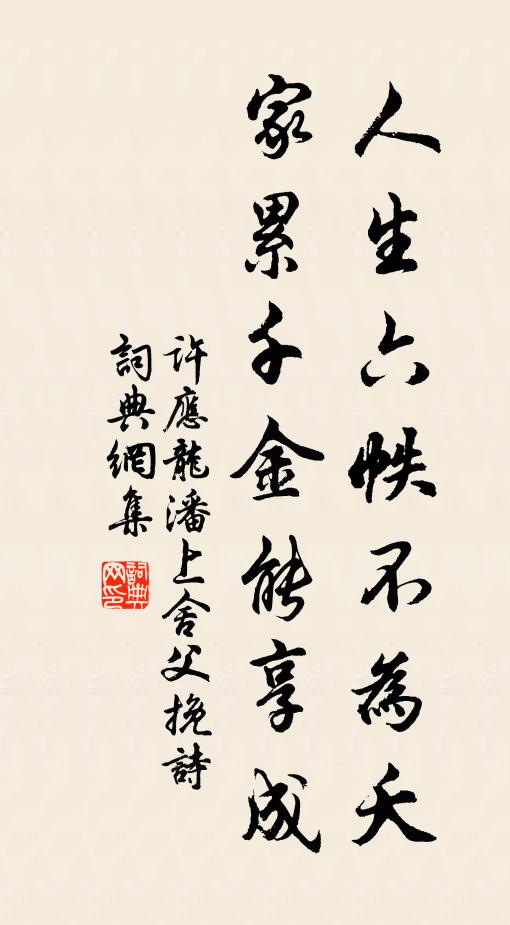 人生六帙不為夭
家累千金能享成
許應龍潘上舍父挽詩
詞典網集
詞典网印